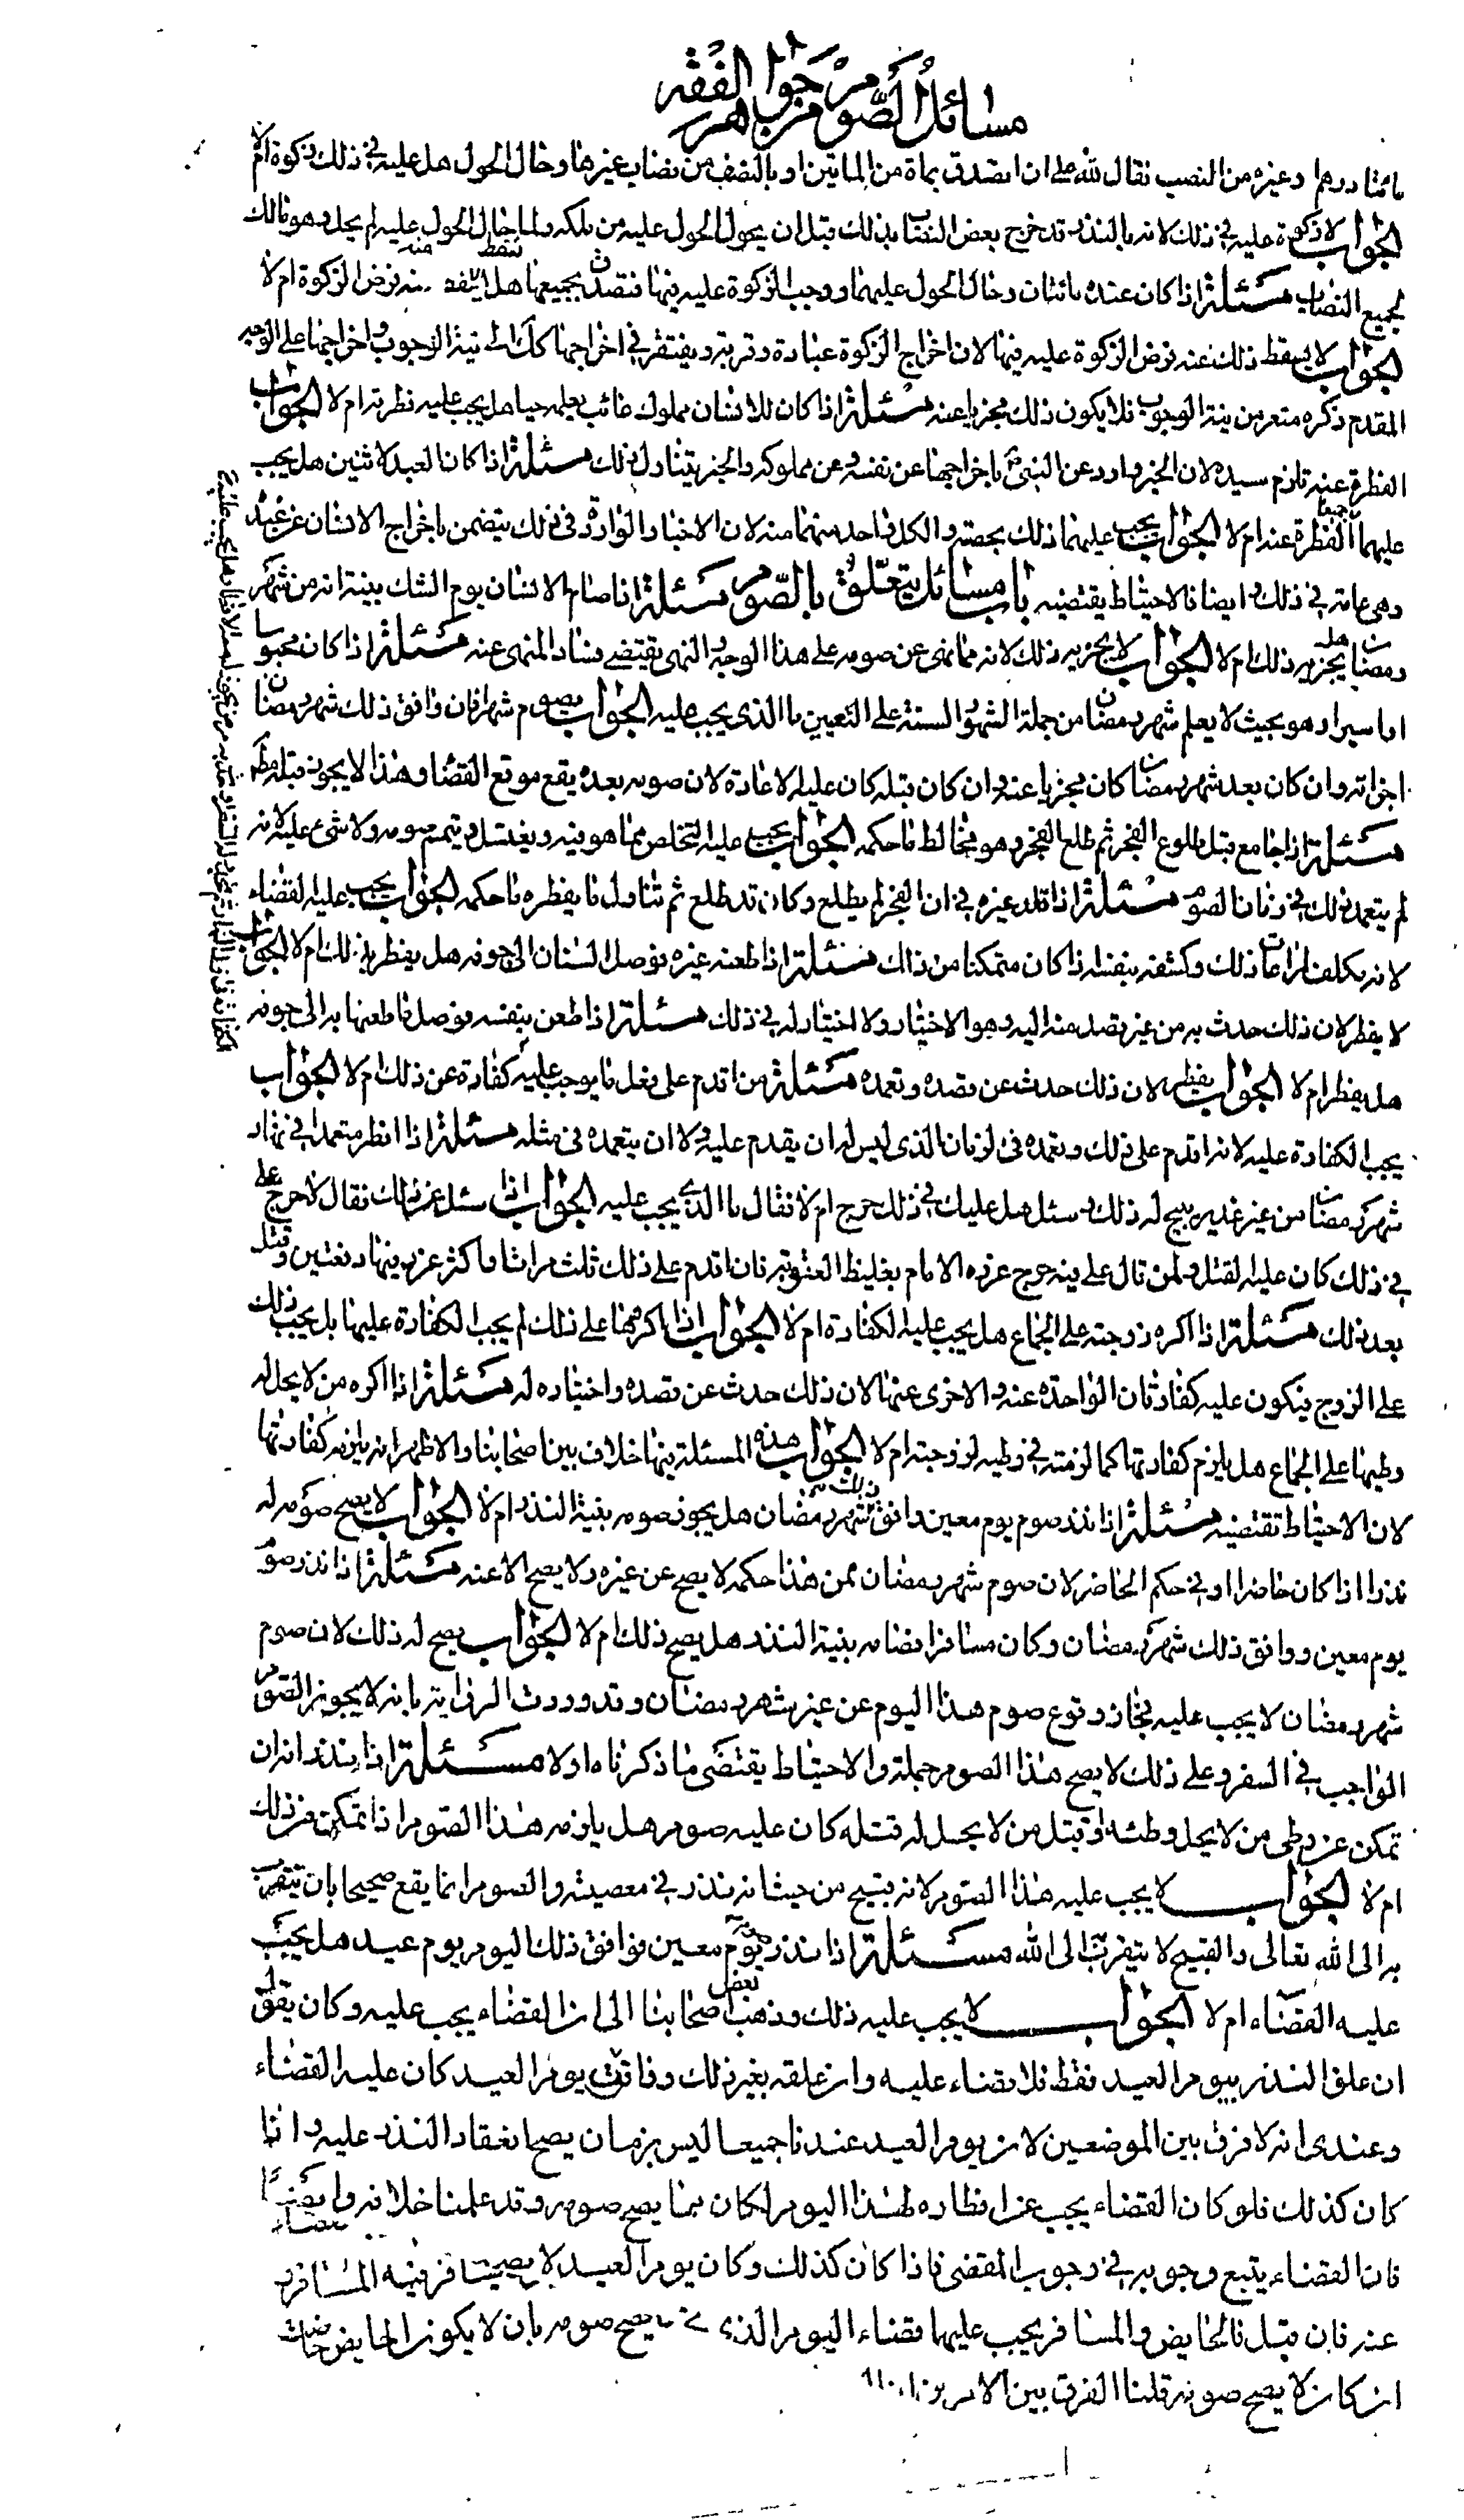 مسائل الصوم من جواهر الفقه
مائتا درهم وغيره من النصب فقال لله على ان اتصدق بماة من الماتين او بالنصف من نصاب غيرها وحال الحول هل عليه في ذلك زكوة ام لا
الجواب لا زكوة عليه في ذلك لانه بالنذر قد خرج بعض النصاب بذلك قبل ان يحول الحول عليه من ملكه ولما حال الحول عليه لم يحل وهو مالك
لجميع النصاب مسئلة اذا كان عنده مائتان وحال الحول عليهما ووجب الزكوة عليه فيها فتصدق بجميعها هل يسقط منه فرض الزكوة ام لا
الجواب لا يسقط ذلك عنه فرض الزكوة عليه فيها لان اخراج الزكوة عبادة وقربة ويفتقر في اخراجها كذلك الى نية الوجوب واخراجها على الوجه
المقدم ذكره متعر من نية الوجوب فلا يكون ذلك مجزيا عنه مسئلة اذا كان للانسان مملوك غائب يعلمه حيا هل يجب عليه فطرته ام لا الجواب
الفطرة عنه تلزم سيده لان الخبر وارد عن النبي ص باخراجها عن نفسه وعن مملوكه والخبر يتناول ذلك مسئلة اذا كان العبد لاثنين هل يجب
عليهما جميعا الفطرة عنه ام لا الجواب يجب عليهما ذلك بحصته والكل واحد منهما منه لان الاخبار الواردة في ذلك يتضمن باخراج الانسان عن عبده
وهى عامة في ذلك وايضا فالاحتياط يقتضيه باب مسائل يتعلق بالصوم مسئلة اذا صام الانسان يوم الشك بينة انه من شهر
رمضان هل يجزيه ذلك ام لا الجواب لا يجزيه ذلك لانه مما نهى عن صومه على هذا الوجه والنهى يقتضى فساد المنهى عنه مسئلة اذا كان محبوسا
او اسيرا وهو بحيث لا يعلم شهر رمضان من جملة الشهور السنة على التعيين ما الذى يجب عليه الجواب يصوم شهرا فان وافق ذلك شهر رمضان
اجزاته وان كان بعد شهر رمضان كان مجزيا عنه وان كان قبله كان عليه الاعادة لان صومه بعده يقع موقع القضاء وهذا لا يجوز قبله
مسئلة اذا جامع قبل طلوع الفجر ثم طلع الفجر وهو مخالط ما حكمه الجواب يجب عليه التخلص مما هو فيه ويغتسل ويتمم صومه ولا شئ عليه لانه
لم يتعمد ذلك في زمان الصوم مسئلة اذا قلد غيره في ان الفجر لم يطلع وكان قد طلع ثم تناول ما يفطره ما حكمه الجواب يجب عليه القضاء
لانه مكلف لمراعات ذلك وكشفه بنفسه اذا كان متمكنا من ذلك مسئلة اذا طعنه غيره فوصل السنان الى جوفه هل يفطر بذلك ام لا الجواب
لا يفطر لان ذلك حدث به من غير قصد منه اليه وهو الاختيار ولا اختيار له في ذلك مسئلة اذا طعن بنفسه فوصل ما طعنها به الى جوفه
هل يفطر ام لا الجواب يفطر لان ذلك حدث عن قصده وتعمده مسئلة من اقدم على فعل ما يوجب عليه كفارة عن ذلك ام لا الجواب
يجب الكفارة عليه لانه اقدم على ذلك وتعمده في الزمان الذى ليس له ان يقدم عليه ولا ان يتعمده في مثله مسئلة اذا افطر متعمدا في نهار
شهر رمضان من غير عذر يبيح له ذلك وسئل هل عليك في ذلك حرج ام لا فقال ما الذي يجب عليه الجواب اذا سئل عن ذلك فقال لا حرج على
في ذلك كان عليه القتل ولمن قال على فيه حرج عزره الامام بغليظ العقوبة فان اقدم على ذلك ثلث مرات فاكثر عزر فيها دفعتين وقتله
بعد ذلك مسئلة اذا اكره زوجته على الجماع هل يجب عليه الكفارة ام لا الجواب اذا اكرهها على ذلك لم يجب الكفارة عليها بل يجب ذلك
على الزوج فيكون عليه كفارتان الواحدة عنه والاخرى عنها لان ذلك حدث عن قصده واختياره له مسئلة اذا اكره من لا يحل له
وطيها على الجماع هل يلزم كفارتها كما لزمته في وطيه لزوجته ام لا الجواب هذه المسئلة فيها خلاف بين اصحابنا والاظهر انه يلزمه كفارتها
لان الاحتياط تقتضيه مسئلة اذا نذر صوم يوم معين وافق ذلك شهر رمضان هل يجوز صومه بنية النذر ام لا الجواب لا يصح صومه له
نذرا اذا كان حاضرا او في حكم الحاضر لان صوم شهر رمضان ممن هذا حكمه لا يصح عن غيره ولا يصح الا عنه مسئلة اذا نذر صوم
يوم معين ووافق ذلك شهر رمضان وكان مسافرا فصامه بنية النذر هل يصح ذلك ام لا الجواب يصح له ذلك لان صوم
شهر رمضان لا يجب عليه فجاز وقوع صوم هذا اليوم عن غير شهر رمضان وقد وردت الرواية بانه لا يجوز الصوم
الواجب في السفر وعلى ذلك لا يصح هذا الصوم جملة والاحتياط يقتضى ما ذكرناه اولا مسئلة اذا نذر انه ان
تمكن عن وطى من لا يحل وطئه او قتل من لا يحل له قتله كان عليه صوم هل يلزمه هذا الصوم اذا تمكن من ذلك
ام لا الجواب لا يجب عليه هذا الصوم لانه قبيح من حيث انه نذر في معصية والصوم انما يقع صحيحا بان يتقرب
به الى الله تعالى والقبيح لا يتقرب الى الله مسئلة اذا نذر صوم يوم معين فوافق ذلك اليوم يوم عيد هل يجب
عليه القضاء ام لا الجواب لا يجب عليه ذلك وذهب بعض اصحابنا الى ان القضاء يجب عليه وكان يقول
ان علق النذر بيوم العيد فقط فلا قضاء عليه وان علقه بغير ذلك ووافق يوم العيد كان عليه القضاء
وعندى انه لا فرق بين الموضعين لان يوم العيد عندنا جميعا ليس بزمان يصح انعقاد النذر عليه واذا
كان كذلك فلو كان القضاء يجب عن افطاره لهذا اليوم لكان مما يصح صومه وقد علمنا خلافه وايضا
فان القضاء يتبع وجوبه في وجوب المقضى فاذا كان كذلك وكان يوم العيد لا يصح
عنه فان قيل فالحايض والمسافر يجب عليهما قضاء اليوم الذى يصح صومه بان لا يكون الحايض حاضت
ان كان لا يصح صومه قلنا الفرق بين الامرين